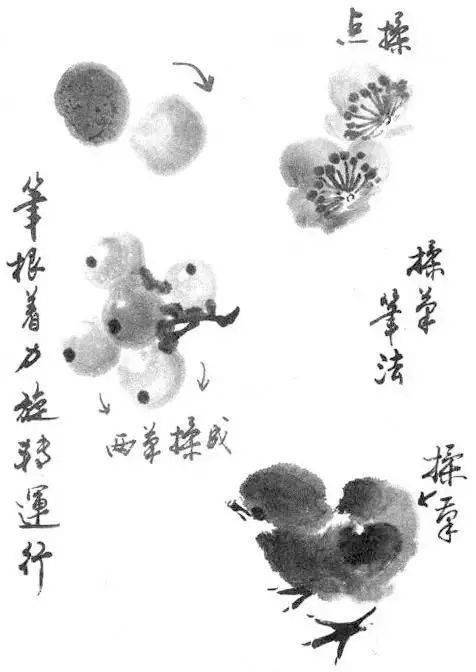 点揉
筆根着力旋轉運行
揉筆
筆法
两筆揉成
揉筆